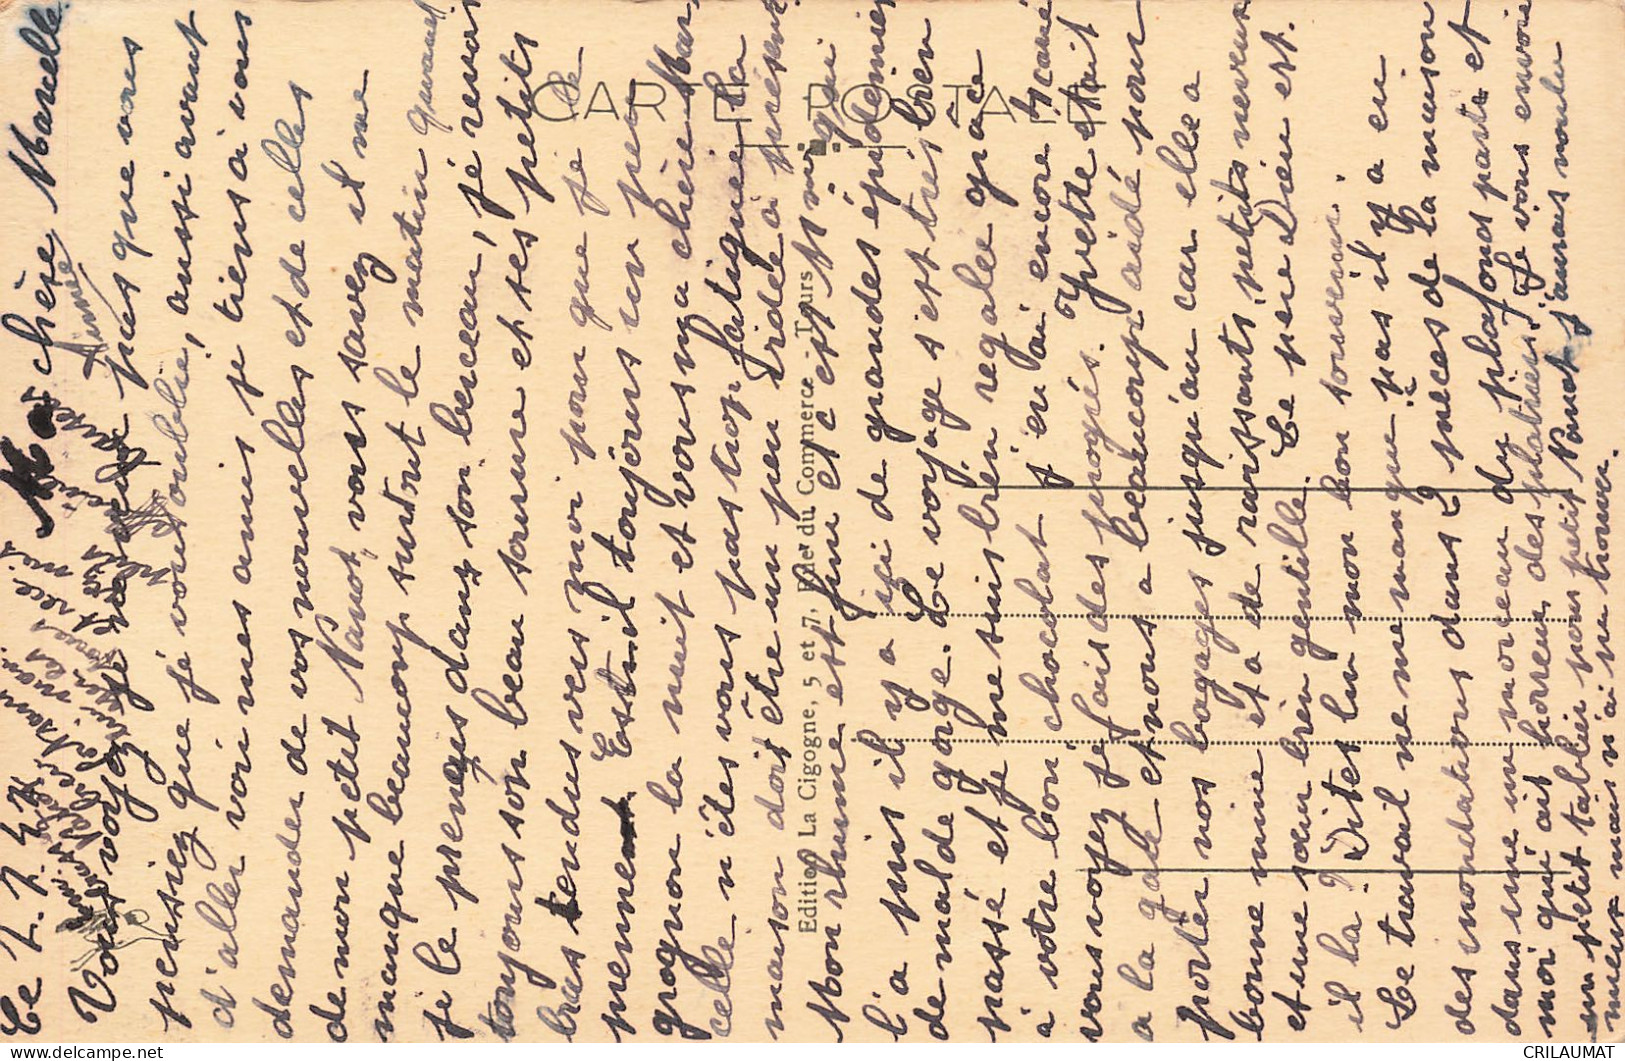 Le 2.2.47
Ma chère Marcelle
Vous voyez je n'ai pas que vous
pensiez que je vous oublie, aussi avant
d'aller voir mes amis je tiens à vous
demander de vos nouvelles et de celles
de mon petit Nanot, vous savez il me
manque beaucoup surtout le matin quand
je le prenais dans son berceau, je revois
toujours son beau sourire et ses petits
bras tendus vers moi pour que je le
prenne. Est-il toujours un peu
grognon la nuit et vous ma chère Mar
celle n'êtes vous pas trop fatiguée la
maison doit être un peu vide à présent.
Mon rhume est fini et c'est Noir qui
l'a puis il y a ici de grandes épidémies
de mal de gorge. Le voyage s'est très bien
passé et je me suis bien régalée grâce
à votre bon chocolat j'en ai encore
vous voyez je fais des progrès. Yvette était
a la gare et nous a beaucoup aidé pour
porter nos bagages jusqu'au car elle a
bonne mine et a de ravissants petits neveux
et une sœur bien gentille. Le père Dieu est.
il la ? Dites lui mon bon souvenir.
Le travail ne me manque pas il y a eu
des inondations dans 2 pièces de la maison
dans une un morceau du plafond parti et
moi qui ait horreur des plâtriers! Je vous envoie
un petit tablier pour petit Nanot j'aurais voulu
mieux mais n'ai pu trouver.
CARTE POSTALE
Edition La Cigogne, 5 et 7, Rue du Commerce - Tours
CRILAUMAT